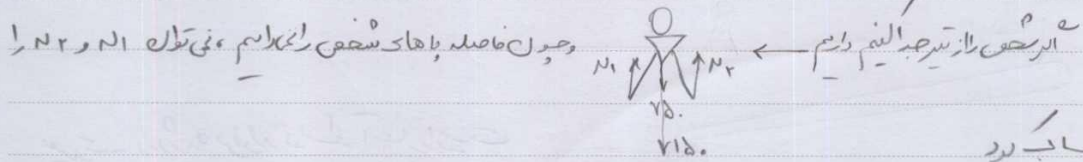 اگر شخص را از تیر جدا کنیم داریم ← N1 N2 و چون فاصله پاهای شخص را نداریم، نمی‌توان N1 و N2 را
۷۵۰
۷۱۵۰